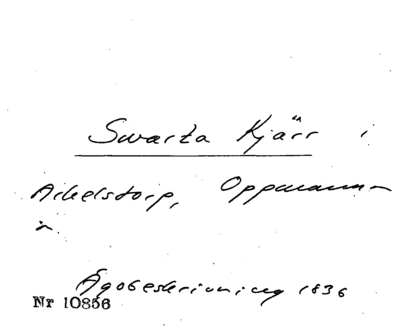 Swarta Kjärr i
Arkelstorp, Oppmanna
Ägobeskrivning 1836
Nr 10856